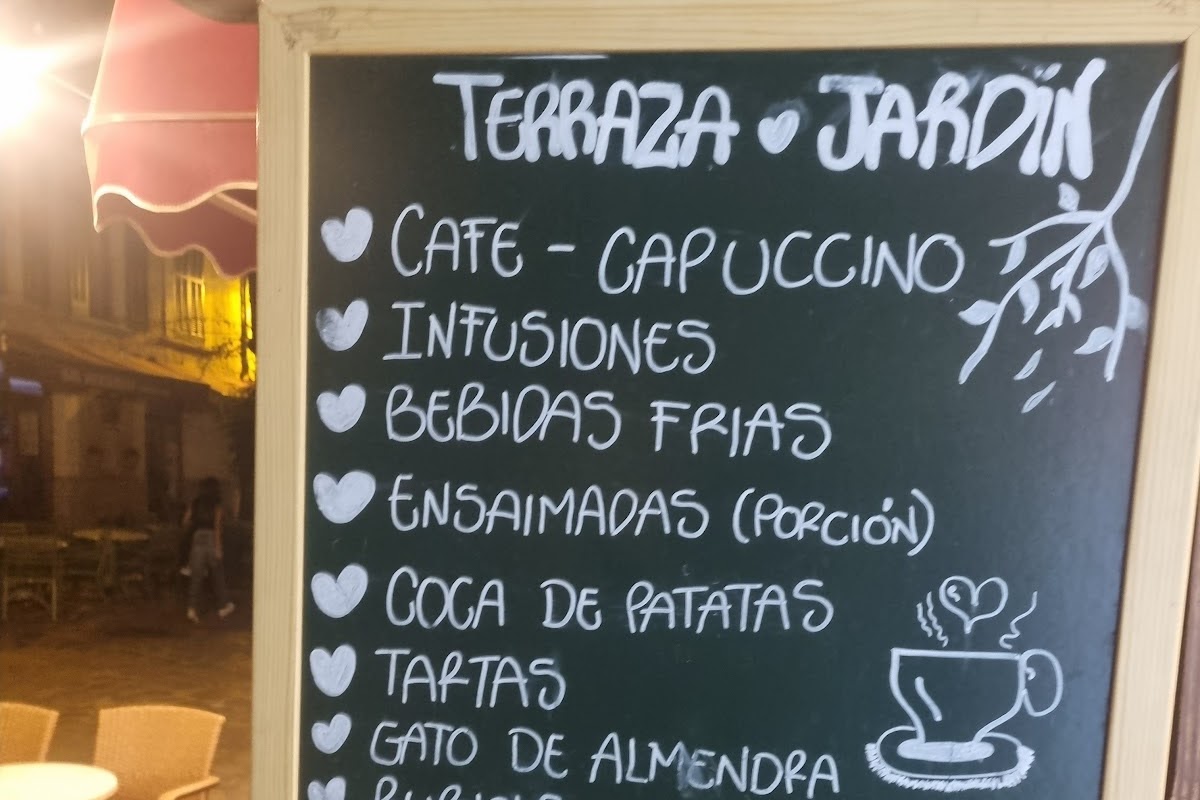 TERRAZA JARDÍN
CAFE - CAPUCCINO
INFUSIONES
BEBIDAS FRIAS
ENSAIMADAS (PORCIÓN)
COCA DE PATATAS
TARTAS
GATO DE ALMENDRA